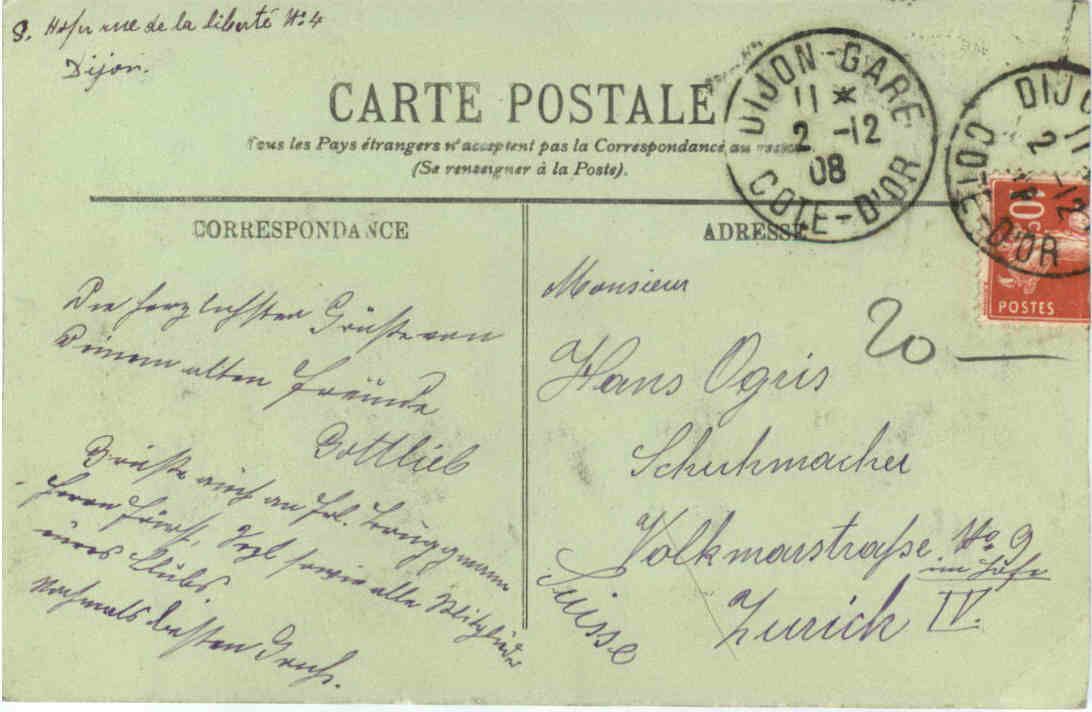 rue de la liberté No. 4
Dijon.
CARTE POSTALE
Tous les Pays étrangers n'acceptent pas la Correspondance au
(Se renseigner à la Poste).
DIJON-GARE
11 *
2 -12
08
COTE-D'OR
DIJ
11
2 -12
COTE-D'OR
10
POSTES
CORRESPONDANCE
Die herzlichsten Grüße von
Deinem alten Freunde
Gottlieb
Grüße auch an Frl. Brüggmann
Herrn Fürst, sowie alle Mitglieder
eures Clubs.
Nochmals besten Gruß.
ADRESSE
Monsieur
20
Hans Ogris
Schuhmacher
Volkmarstraße No 9
im Hofe
Zürich IV.
Suisse